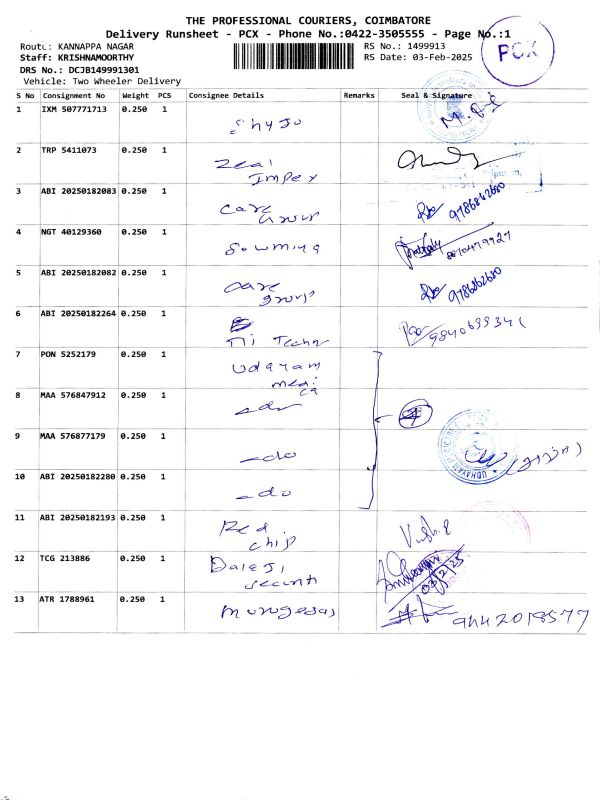 THE PROFESSIONAL COURIERS, COIMBATORE
Delivery Runsheet - PCX - Phone No.:0422-3505555 - Page No.:1
PCX
Route: KANNAPPA NAGAR
RS No.: 1499913
Staff: KRISHNAMOORTHY
RS Date: 03-Feb-2025
DRS No.: DCJB149991301
Vehicle: Two Wheeler Delivery
S No Consignment No Weight PCS Consignee Details Remarks Seal & Signature
1 IXM 507771713 0.250 1 Shyju
2 TRP 5411073 0.250 1 Zeal Impex
3 ABI 20250182083 0.250 1 Care Group 9786862680
4 NGT 40129360 0.250 1 Sowmiya
5 ABI 20250182082 0.250 1 Care group 9786862680
6 ABI 20250182264 0.250 1
7 PON 5252179 0.250 1 Udayam medi ca
8 MAA 576847912 0.250 1 -do
9 MAA 576877179 0.250 1 -do
10 ABI 20250182280 0.250 1 -do
11 ABI 20250182193 0.250 1 Red chip
12 TCG 213886 0.250 1 Balaji securiti 03/2/25
13 ATR 1788961 0.250 1 murugesas 9442018577